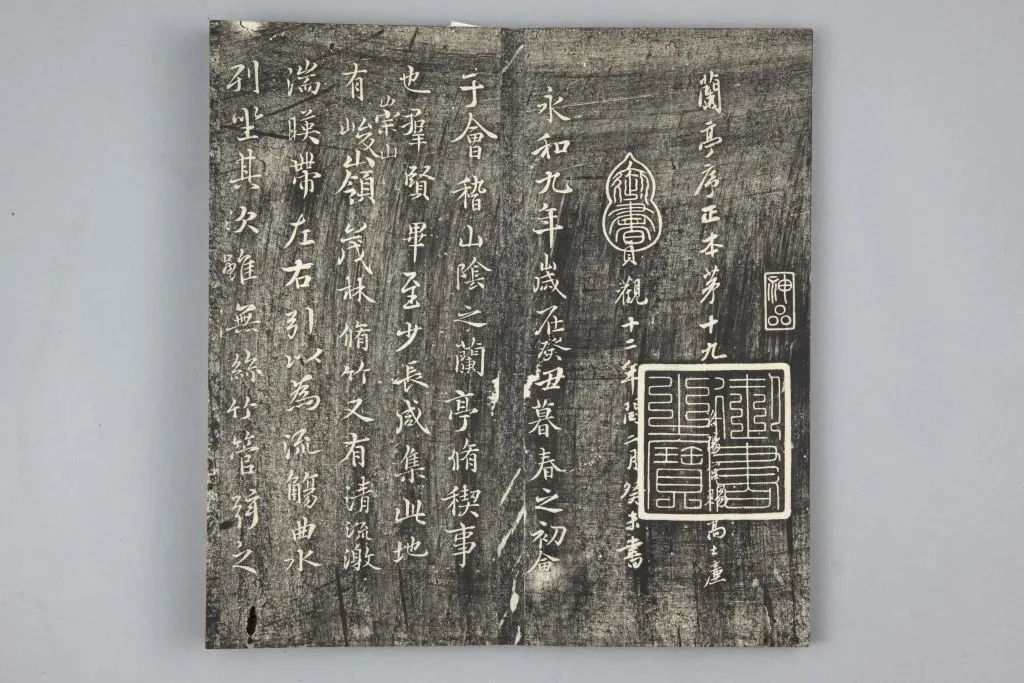 神品
蘭亭序正本第十九
賜高士廉
御書
貞觀十二年閏二月癸未書
御書之寶
永和九年歲在癸丑暮春之初會
于會稽山陰之蘭亭脩稧事
也羣賢畢至少長咸集此地
崇山
有峻嶺茂林脩竹又有清流激
湍暎帶左右引以為流觴曲水
列坐其次雖無絲竹管弦之